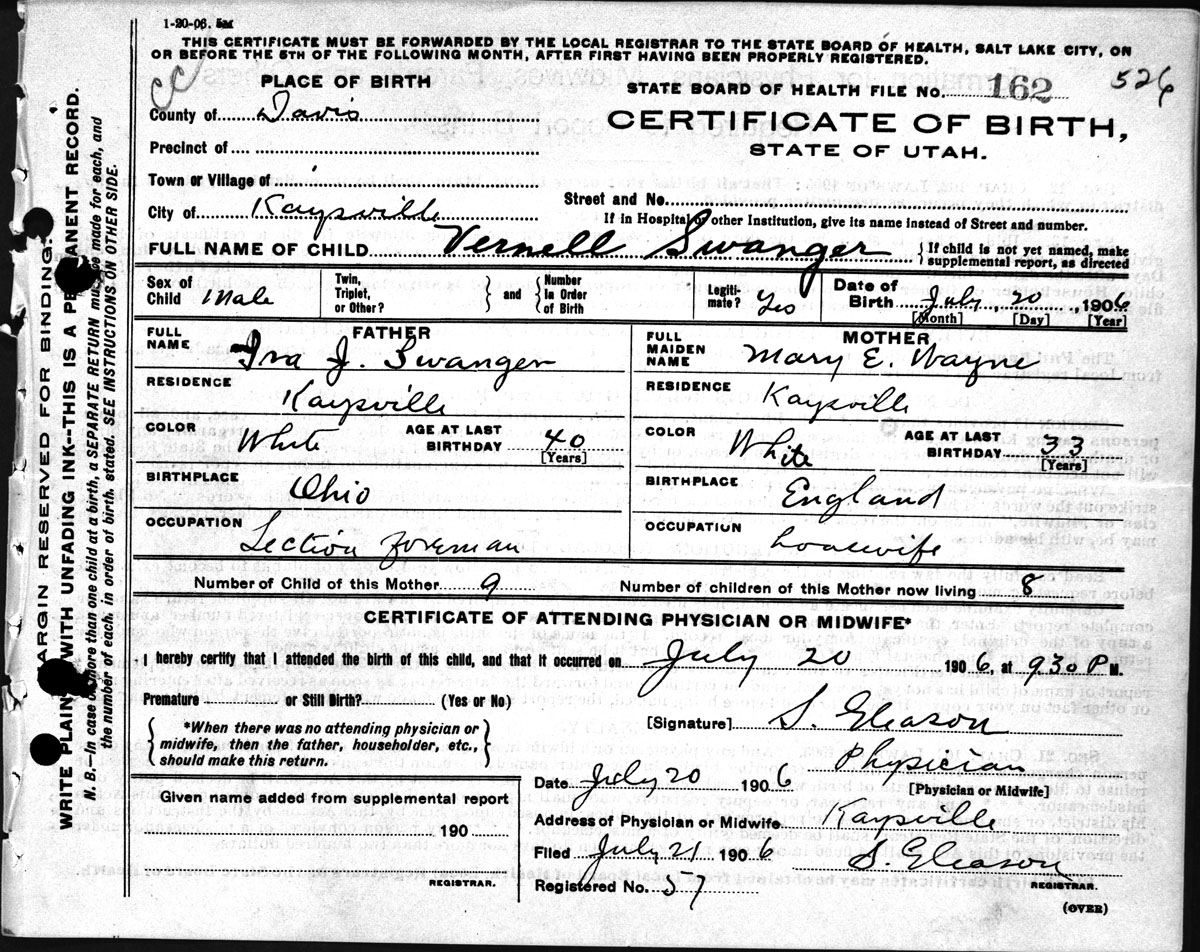 1-20-06. 5M
THIS CERTIFICATE MUST BE FORWARDED BY THE LOCAL REGISTRAR TO THE STATE BOARD OF HEALTH, SALT LAKE CITY, ON
OR BEFORE THE 5TH OF THE FOLLOWING MONTH, AFTER FIRST HAVING BEEN PROPERLY REGISTERED.
PLACE OF BIRTH
STATE BOARD OF HEALTH FILE NO. 162 526
County of Davis
CERTIFICATE OF BIRTH,
STATE OF UTAH.
Precinct of
Town or Village of
Street and No.
City of Kaysville
If in Hospital or other Institution, give its name instead of Street and number.
FULL NAME OF CHILD Vernell Swanger { If child is not yet named, make
supplemental report, as directed
Sex of Child Male
Twin, Triplet, or Other? } and { Number in Order of Birth
Legitimate? Yes
Date of Birth July, 20, 1906
[Month] [Day] [Year]
FATHER
FULL NAME Ira J. Swanger
RESIDENCE Kaysville
COLOR White AGE AT LAST BIRTHDAY 40 [Years]
BIRTHPLACE Ohio
OCCUPATION Section Foreman
MOTHER
FULL MAIDEN NAME Mary E. Wayne
RESIDENCE Kaysville
COLOR White AGE AT LAST BIRTHDAY 33 [Years]
BIRTHPLACE England
OCCUPATION housewife
Number of Child of this Mother 9 Number of children of this Mother now living 8
CERTIFICATE OF ATTENDING PHYSICIAN OR MIDWIFE*
I hereby certify that I attended the birth of this child, and that it occurred on July 20 1906 at 930 P M.
Premature or Still Birth? (Yes or No)
{ *When there was no attending physician or
midwife, then the father, householder, etc.,
should make this return. }
[Signature] S. Gleason
Physician
[Physician or Midwife]
Date July 20 1906
Given name added from supplemental report
190
REGISTRAR.
Address of Physician or Midwife Kaysville
Filed July 21 1906 S. Gleason
REGISTRAR.
Registered No. 57
(OVER)
MARGIN RESERVED FOR BINDING.
WRITE PLAINLY WITH UNFADING INK--THIS IS A PERMANENT RECORD.
N. B.—In case of more than one child at a birth, a SEPARATE RETURN must be made for each, and
the number of each, in order of birth, stated. SEE INSTRUCTIONS ON OTHER SIDE.